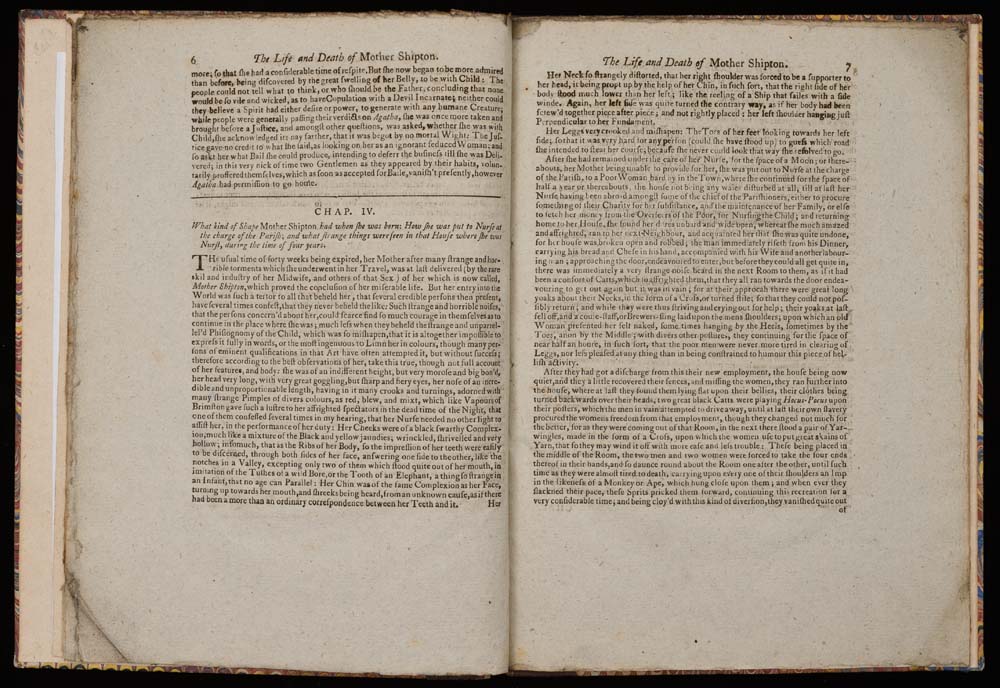 6 The Life and Death of Mother Shipton.
more; so that she had a considerable time of respite. But she now began to be more admired
than before, being discovered by the great swelling of her Belly, to be with Child: The
people could not tell what to think, or who should be the Father, concluding that none
would be so vile and wicked, as to have Copulation with a Devil Incarnate; neither could
they believe a Spirit had either desire or power, to generate with any humane Creature;
while people were generally passing their verdicts on Agatha, she was once more taken and
brought before a Justice, and amongst other questions, was asked, whether she was with
Child, she acknowledged it; nay farther, that it was begot by no mortal Wight: The Jus-
tice gave no credit to what she said, as looking on her as an ignorant seduced Woman; and
so askt her what Bail she could produce, intending to defer the business till she was Deli-
vered; in this very nick of time two Gentlemen as they appeared by their habits, volun-
tarily proffered themselves, which as soon as accepted for Baile, vanish't presently, however
Agatha had permission to go home.
CHAP. IV.
What kind of Shape Mother Shipton had when she was born: How she was put to Nurse at
the charge of the Parish; and what strange things were seen in that House where she was
Nurst, during the time of four years.
THe usual time of forty weeks being expired, her Mother after many strange and hor-
rible torments which she underwent in her Travel, was at last delivered (by the rare
skil and industry of her Midwife, and others of that Sex) of her which is now called,
Mother Shipton, which proved the conclusion of her miserable life. But her entry into the
World was such a terror to all that beheld her, that several credible persons then present,
have several times confest, that they never beheld the like: Such strange and horrible noises,
that the persons concern'd about her, could scarce find so much courage in themselves as to
continue in the place where she was; much less when they beheld the strange and unparel-
lel'd Phisiognomy of the Child, which was so mishapen, that it is altogether impossible to
express it fully in words, or the most ingenuous to Limn her in colours, though many per-
sons of eminent qualifications in that Art have often attempted it, but without success;
therefore according to the best observations of her, take this true, though not full account
of her features, and body: she was of an indifferent height, but very morose and big bon'd,
her head very long, with very great goggling, but sharp and fiery eyes, her nose of an incre-
dible and unproportionable length, having in it many crooks and turnings, adorned with
many strange Pimples of divers colours, as red, blew, and mixt, which like Vapours of
Brimston gave such a lustre to her affrighted spectators in the dead time of the Night, that
one of them confessed several times in my hearing, that her Nurse needed no other light to
assist her, in the performance of her duty: Her Cheeks were of a black swarthy Complex-
ion, much like a mixture of the Black and yellow jaundies; wrinckled, shrivelled and very
hollow; insomuch, that as the Ribs of her Body, so the impression of her teeth were easily
to be discerned, through both sides of her face, answering one side to the other, like the
notches in a Valley, excepting only two of them which stood quite out of her mouth, in
imitation of the Tushes of a wild Bore, or the Tooth of an Elephant, a thing so strange in
an Infant, that no age can Parallel: Her Chin was of the same Complexion as her Face,
turning up towards her mouth, and shreeks being heard, from an unknown cause, as if there
had been a more than an ordinary correspondence between her Teeth and it. Her
The Life and Death of Mother Shipton. 7
Her Neck so strangely distorted, that her right shoulder was forced to be a supporter to
her head, it being propt up by the help of her Chin, in such sort, that the right side of her
body stood much lower than her left; like the reeling of a Ship that sailes with a side
winde. Again, her left side was quite turned the contrary way, as if her body had been
screw'd together piece after piece; and not rightly placed; her left shoulder hanging just
Perpendicular to her Fundament.
Her Leggs very crooked and mishapen: The Toes of her feet looking towards her left
side; so that it was very hard for any person (could she have stood up) to guess which road
she intended to stear her course; because she never could look that way she resolved to go.
After she had remained under the care of her Nurse, for the space of a Month; or there-
abouts, her Mother being unable to provide for her, she was put out to Nurse at the charge
of the Parish, to a Poor Woman hard by in the Town, where she continued for the space of
half a year or thereabouts, the house not being any waies disturbed at all, till at last her
Nurse having been abroad amongst some of the chief of the Parishioners, either to procure
something of their Charity for her subsistance, and the maintenance of her Family, or else
to fetch her money from the Overseers of the Poor, for Nursing the Child; and returning
home to her House, she found her dores unbard and wide open; whereat she much amazed
and affrighted, ran to her next Neighbour, and acquainted her that she was quite undone,
for her house was broken open and robbed; the man immediately riseth from his Dinner,
carrying his bread and Chese in his hand, accompanied with his Wife and another labour-
ing man; approaching the door, endeavoured to enter, but before they could all get quite in,
there was immediately a very strange noise heard in the next Room to them, as if it had
been a consort of Catts, which so affrighted them, that they all ran towards the door endea-
vouring to get out again but it was in vain; for at their approach there were great long
yoaks about their Necks, in the form of a Cross, or turned stile; so that they could not pos-
sibly return; and while they were thus striving and crying out for help; their yoaks at last
fell off, and a coule-staff, or Brewers-sling laid upon the mens shoulders; upon which an old
Woman presented her self naked, some times hanging by the Heels, sometimes by the
Toes, anon by the Middle; with divers other postures, they continuing for the space of
near half an houre, in such sort, that the poor men were never more tired in clearing of
Leggs, nor less pleased at any thing than in being constrained to humour this piece of hel-
lish activity.
After they had got a discharge from this their new employment, the house being now
quiet, and they a little recovered their sences, and missing the women, they ran further into
the house, where at last they found them lying flat upon their bellies, their clothes being
turned backwards over their heads, two great black Catts were playing Hocus-Pocus upon
their posters, which the men in vain attempted to drive away, until at last their own slavery
procured the womens freedom from that employment, though they changed not much for
the better, for as they were coming out of that Room, in the next there stood a pair of Yar-
wingles, made in the form of a Cross, upon which the women use to put great skains of
Yarn, that so they may wind it off with more ease and less trouble: These being placed in
the middle of the Room, the two men and two women were forced to take the four ends
thereof in their hands, and so daunce round about the Room one after the other, until such
time as they were almost tired to death, carrying upon every one of their shoulders an Imp
in the likeness of a Monkey or Ape, which hung close upon them; and when ever they
slackned their pace, these Sprits pricked them forward, continuing this recreation for a
very considerable time; and being cloy'd with this kind of diversion, they vanished quite out
of